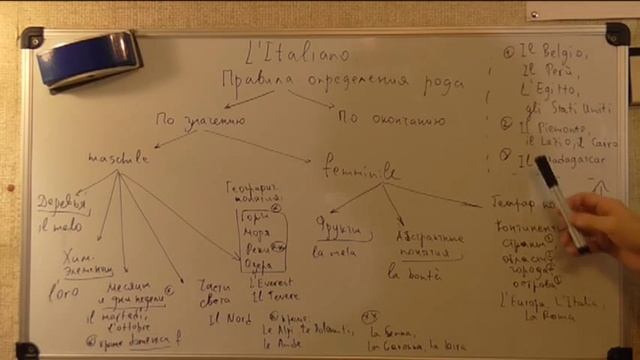 L'Italiano
Правила определения рода
По значению
По окончанию
maschile
femminile
① Il Belgio,
Il Perù,
L'Egitto,
gli Stati Uniti
② Il Piemonte,
il Lazio, il Cairo
③ Il Madagascar
Деревья
il melo
Хим.
Элементы
l'oro
Месяцы
и дни недели
il martedì,
l'ottobre
кроме domenica f
Части
света
Il Nord
Географич.
понятия
Горы
Моря
Реки
Озёра
L'Everest
Il Tevere
кроме:
Le Alpi, le Dolomiti,
le Ande
La Senna,
La Garonna, la Loira
Фрукты
la mela
Абстрактные
понятия
la bontà
Географ
Континенты
страны ①
города
острова
L'Europa, L'Italia,
La Roma